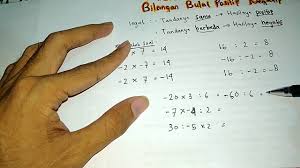 Bilangan Bulat Positif Negatif
Ingat : - Tandanya sama → Hasilnya positif
- Tandanya berbeda → Hasilnya negatif
Soal
2 × 7 = 14
-2 × 7 = -14
16 : 2 = 8
16 : -2 = -8
-20 × 3 : 6 = -60 : 6 =
-7 × -4 : 2 =
30 : -5 × 2 =